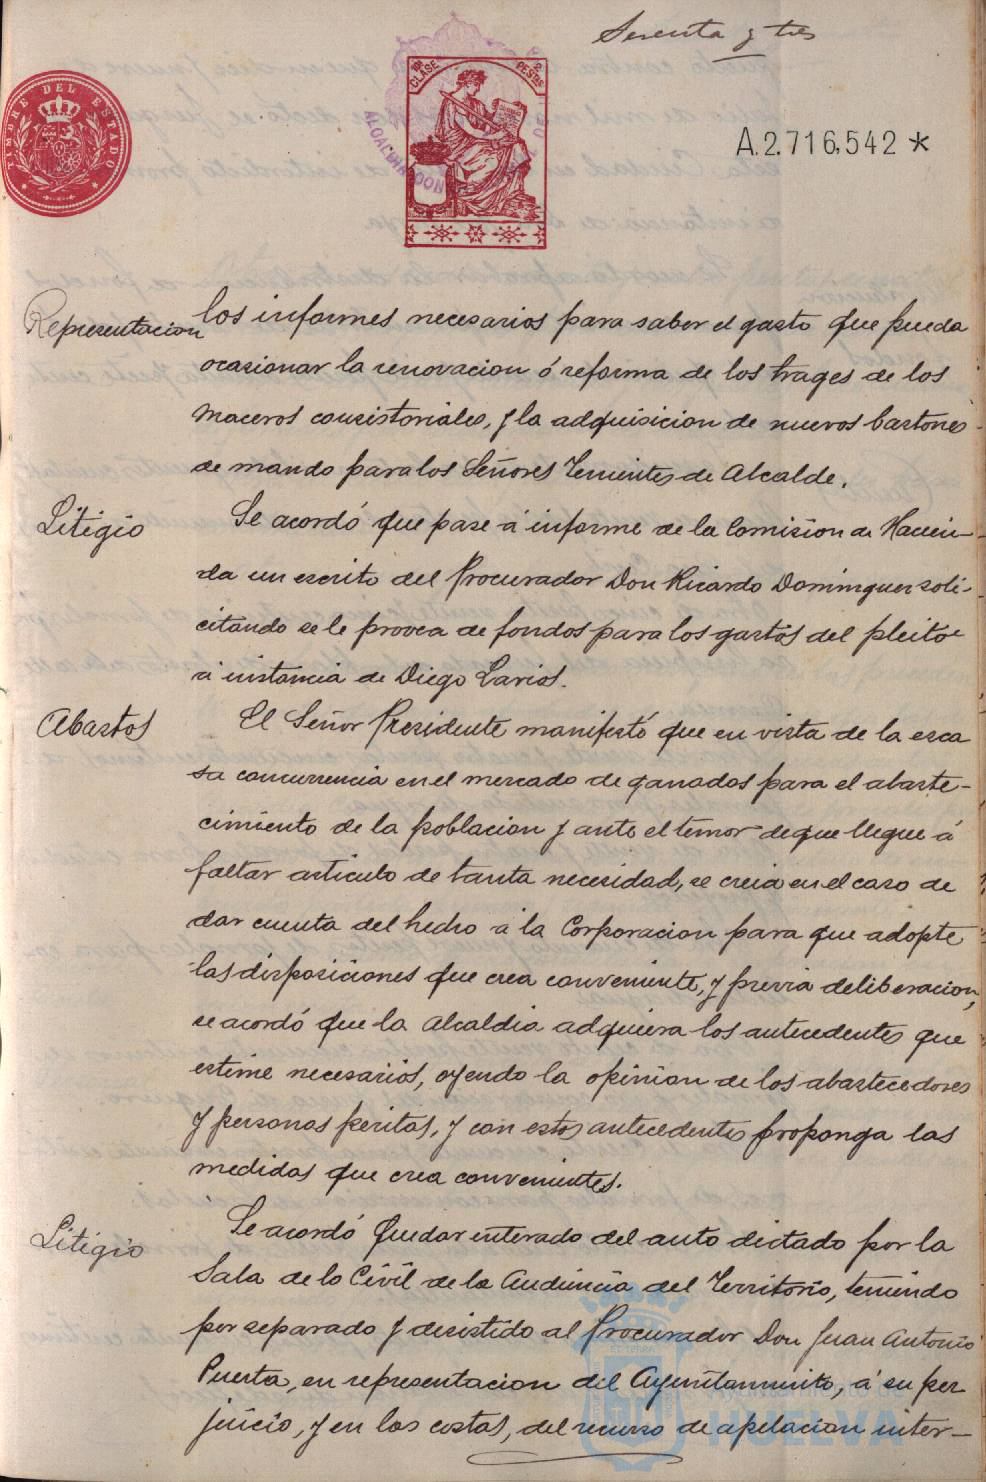 Sesenta y tres
TIMBRE DEL ESTADO
10ª CLASE
2 PESETAS
A.2.716,542 *
Representacion
los informes necesarios para saber el gasto que pueda
ocasionar la renovacion ó reforma de los trages de los
maceros consistoriales, y la adquisicion de nuevos bastones
de mando para los Señores Tenientes de Alcalde.
Litigio
Se acordó que pase á informe de la Comision de Hacien-
da un escrito del Procurador Don Ricardo Dominguez soli-
citando se le provea de fondos para los gastos del pleito
á instancia de Diego Larios.
Abastos
El Señor Presidente manifestó que en vista de la esca
sa concurrencia en el mercado de ganados para el abaste-
cimiento de la poblacion y ante el temor de que llegue á
faltar articulo de tanta necesidad, se creia en el caso de
dar cuenta del hecho á la Corporacion para que adopte
las disposiciones que crea conveniente, y previa deliberacion,
se acordó que la Alcaldia adquiera los antecedentes que
estime necesarios, oyendo la opinion de los abastecedores
y personas peritas, y con estos antecedentes proponga las
medidas que crea convenientes.
Litigio
Se acordó quedar enterado del auto dictado por la
Sala de lo Civil de la Audiencia del Territorio, teniendo
por separado y desistido al Procurador Don Juan Antonio
Puerta, en representacion del Ayuntamiento, á su per
juicio, y en las costas, del recurso de apelacion inter-
Ayuntamiento de
HUELVA